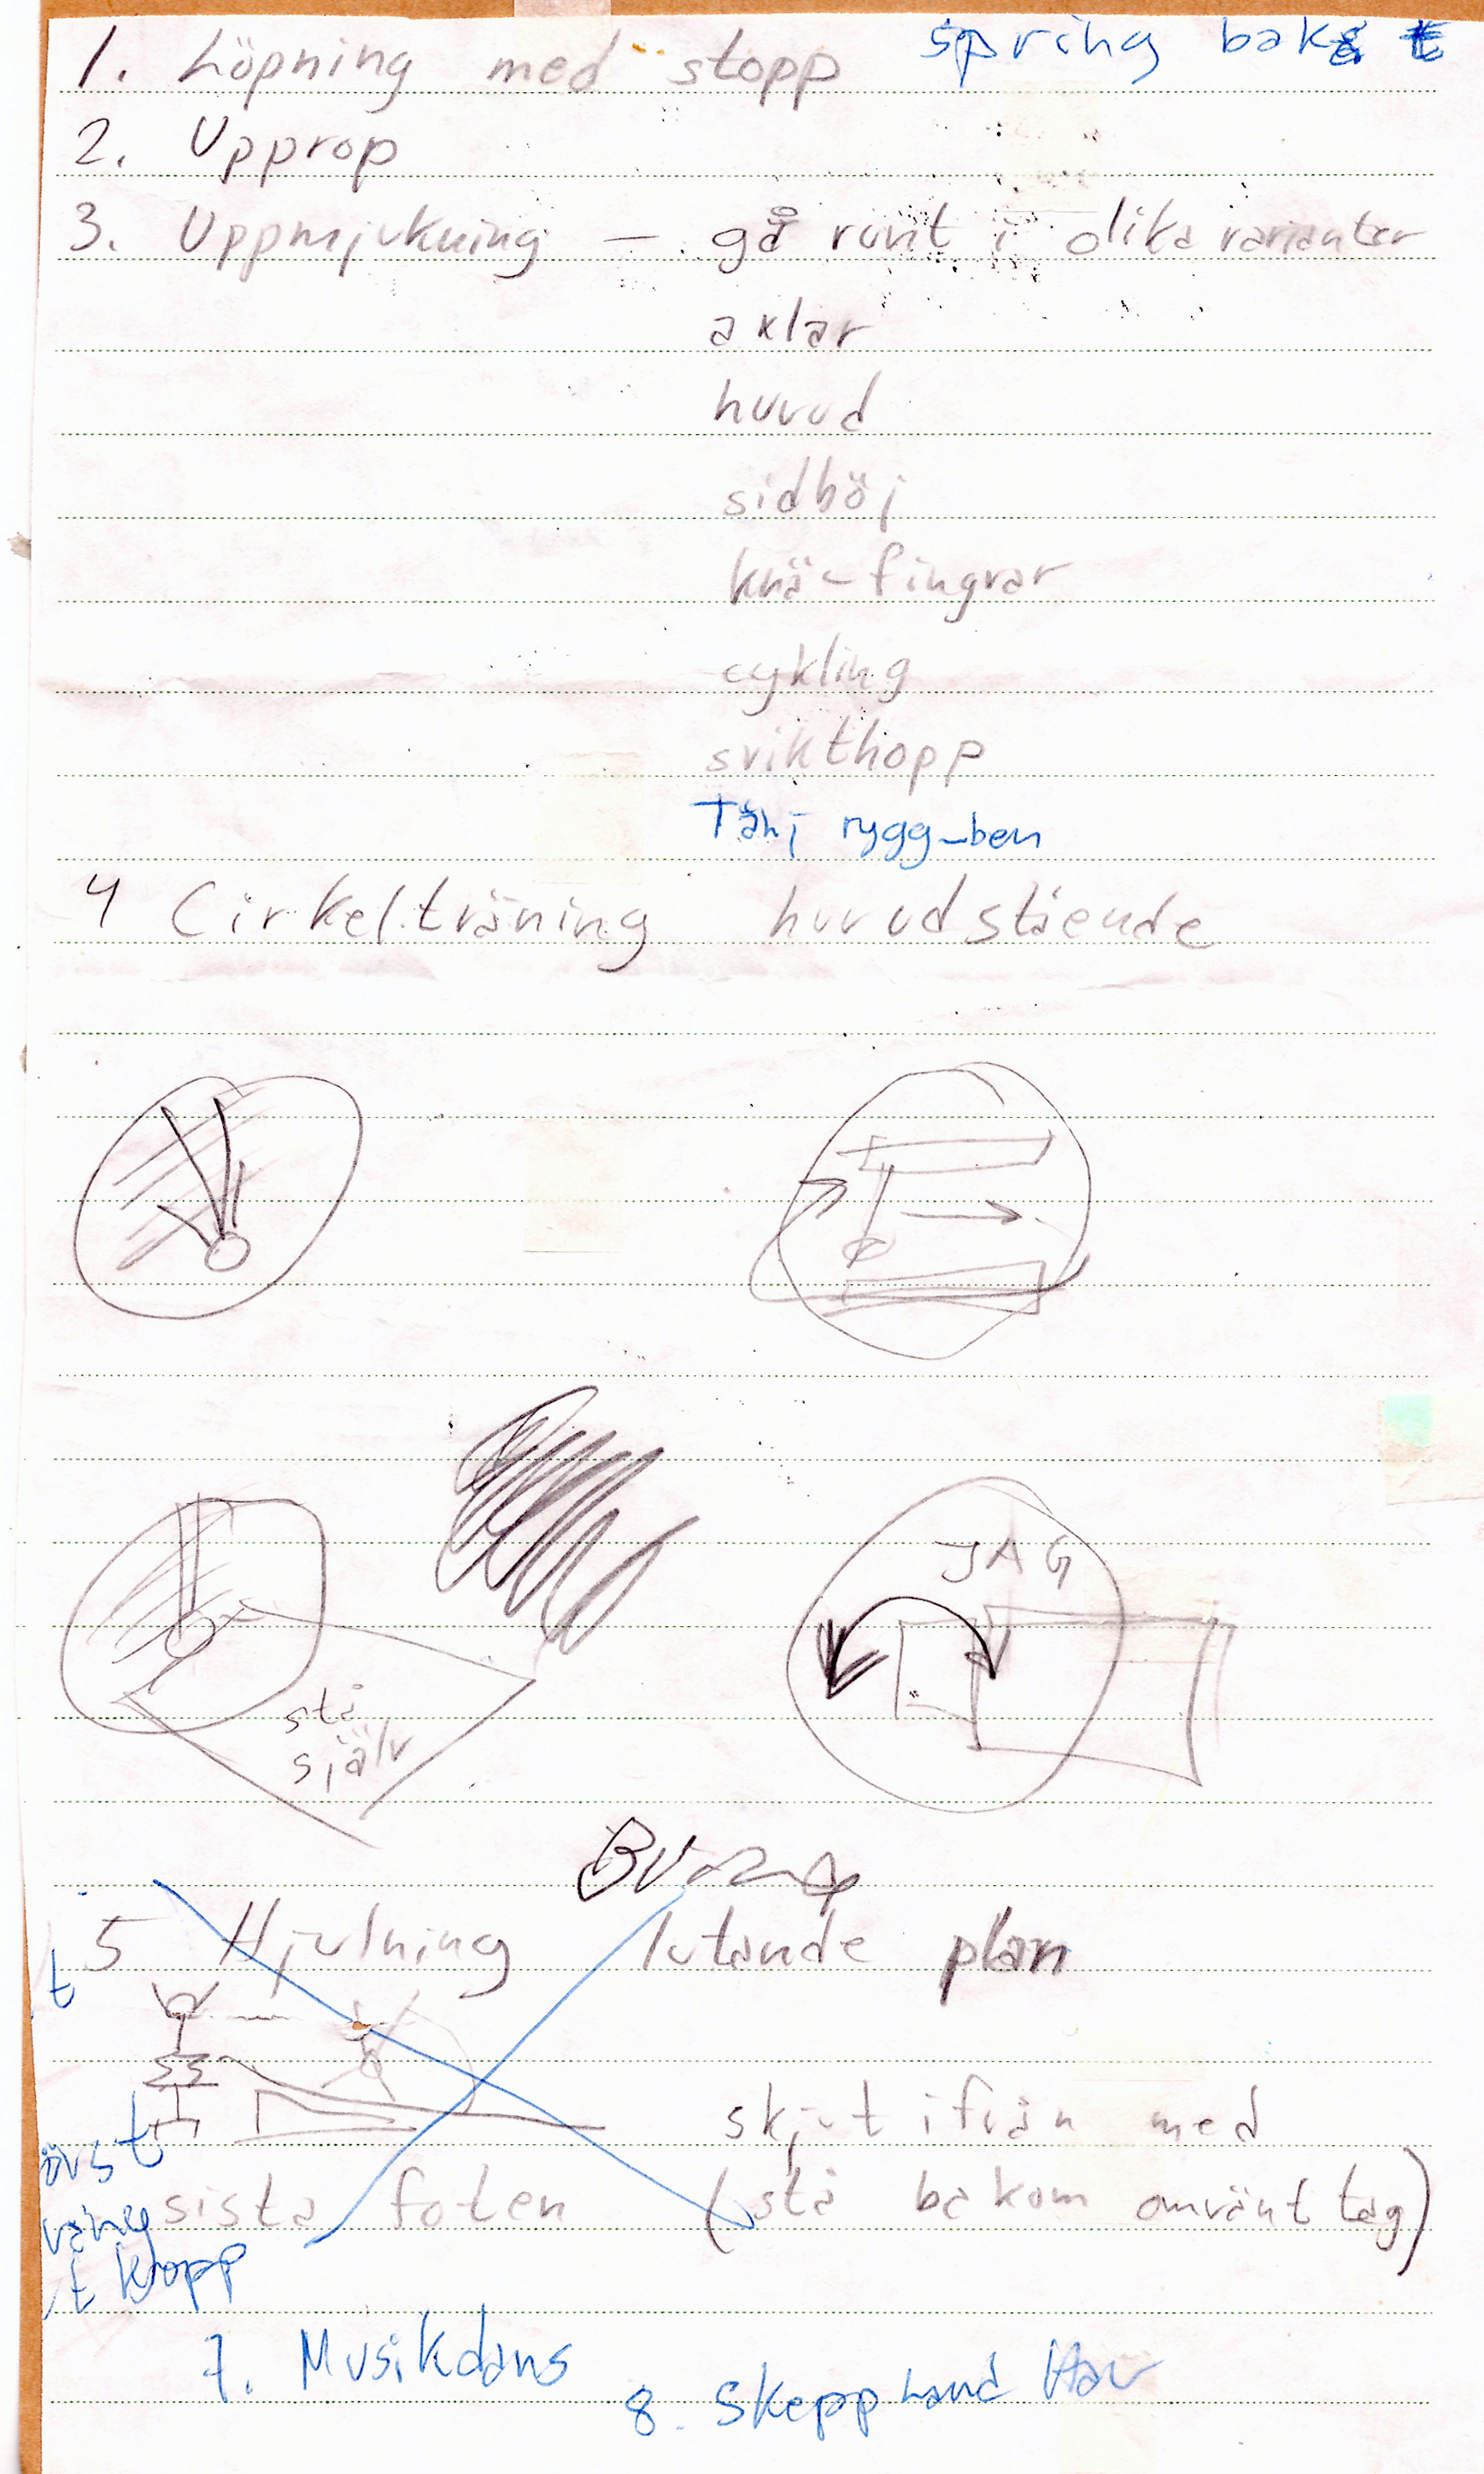 1. Löpning med stopp spring bak
2. Upprop
3. Uppmjukning — gå runt i olika varianter
axlar
huvud
sidböj
knä-fingrar
cykling
svikthopp
Tänj rygg-ben
4 Cirkelträning huvudstående
JAG
stå
själv
5 Hjulning lutande plan
t
skjut ifrån med
sista foten (stå bakom omvänt tag)
t kropp
7. Musikdans
8. Skepp Land Hav